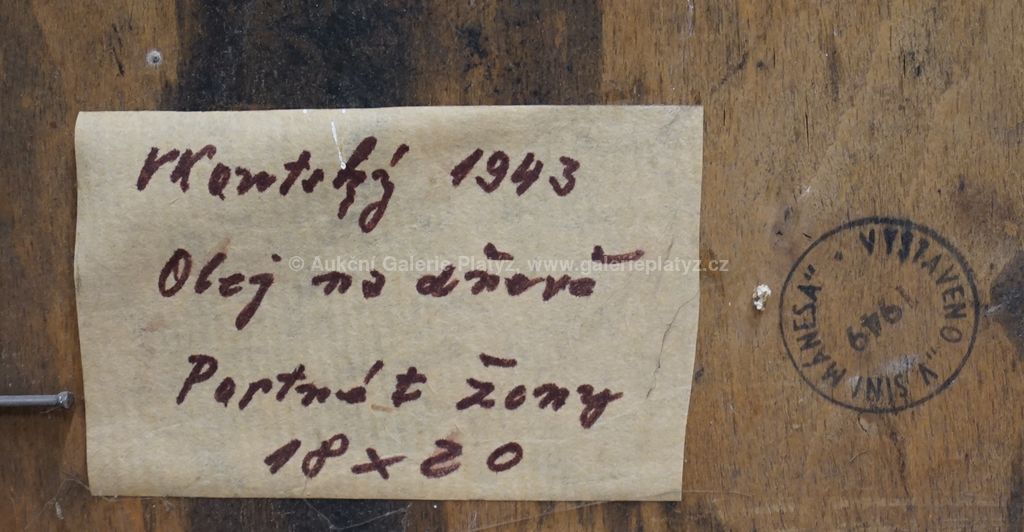 VKautský 1943
Olej na dřevě
© Aukční Galerie Platýz, www.galerieplatyz.cz
Portrét ženy
18 x 20
VYSTAVENO „V SÍNI MÁNESA“ ·
1949